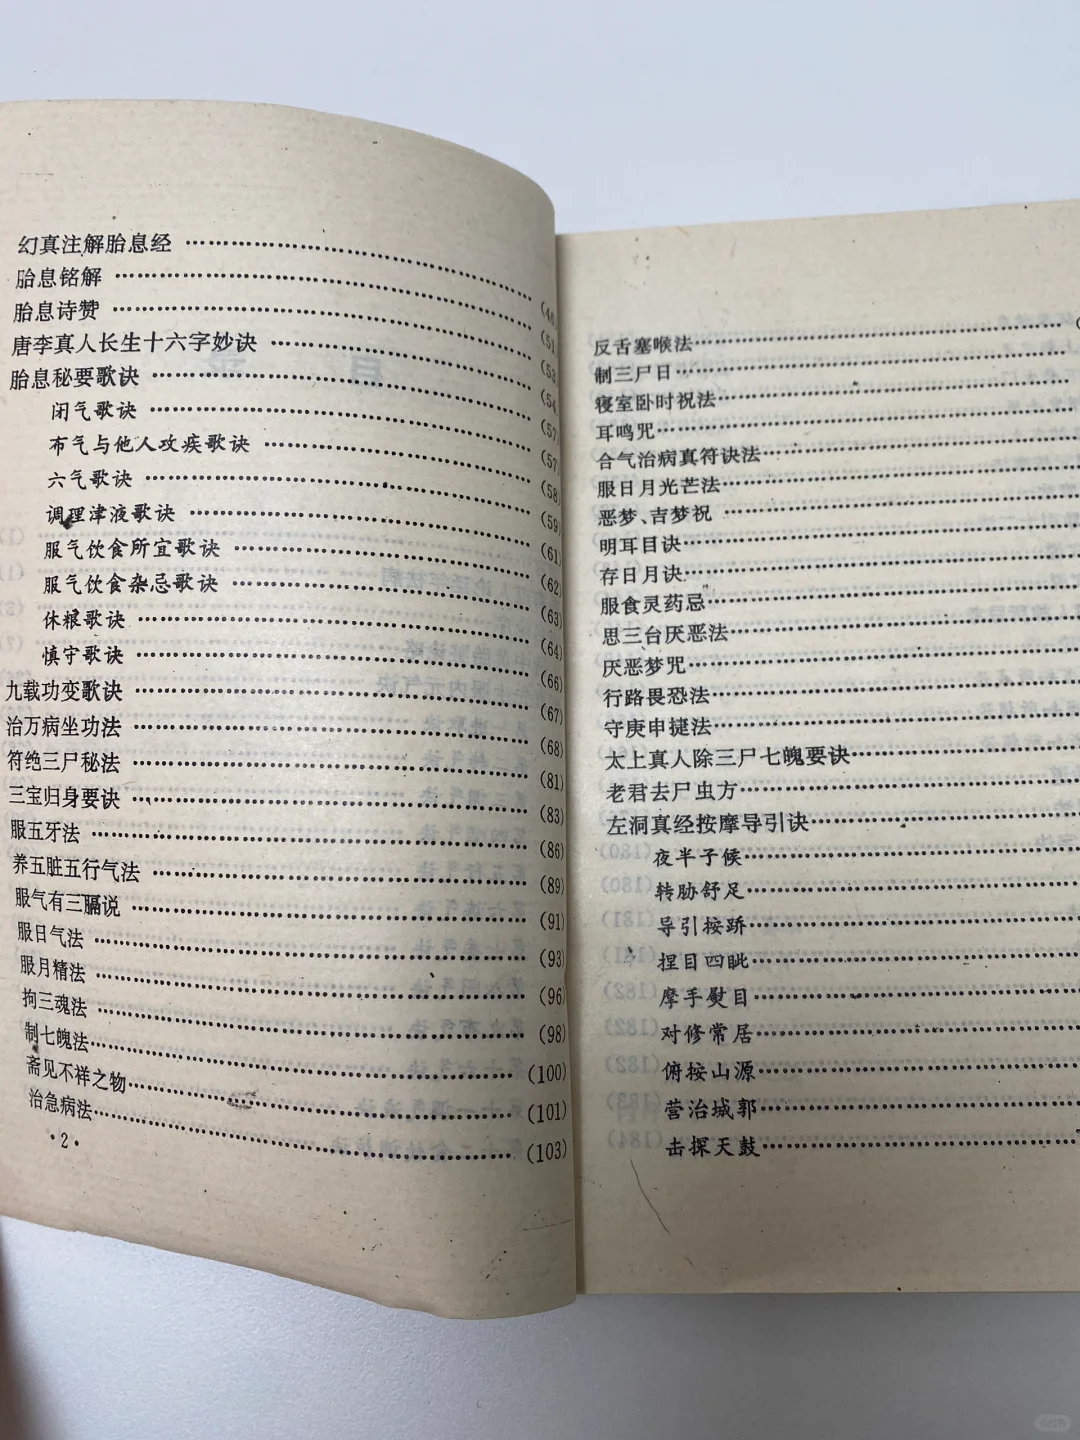 幻真注解胎息经
胎息铭解 (51)
胎息诗赞 (53)
唐李真人长生十六字妙诀 (54)
胎息秘要歌诀 (57)
闭气歌诀 (57)
布气与他人攻疾歌诀 (58)
六气歌诀 (59)
调理津液歌诀 (61)
服气饮食所宜歌诀 (62)
服气饮食杂忌歌诀 (63)
休粮歌诀 (64)
慎守歌诀 (66)
九载功变歌诀 (67)
治万病坐功法 (68)
符绝三尸秘法 (81)
三宝归身要诀 (83)
服五牙法 (86)
养五脏五行气法 (89)
服气有三膈说 (91)
服日气法 (93)
服月精法 (96)
拘三魂法 (98)
制七魄法 (100)
斋见不祥之物 (101)
治急病法 (103)
·2·
反舌塞喉法
制三尸日
寝室卧时祝法
耳鸣咒
合气治病真符诀法
服日月光芒法
恶梦、吉梦祝
明耳目诀
存日月诀
服食灵药忌
思三台厌恶法
厌恶梦咒
行路畏恐法
守庚申捷法
太上真人除三尸七魄要诀
老君去尸虫方
左洞真经按摩导引诀
夜半子候
转胁舒足
导引按跻
捏目四眦
摩手熨目
对修常居
俯按山源
营治城郭
击探天鼓